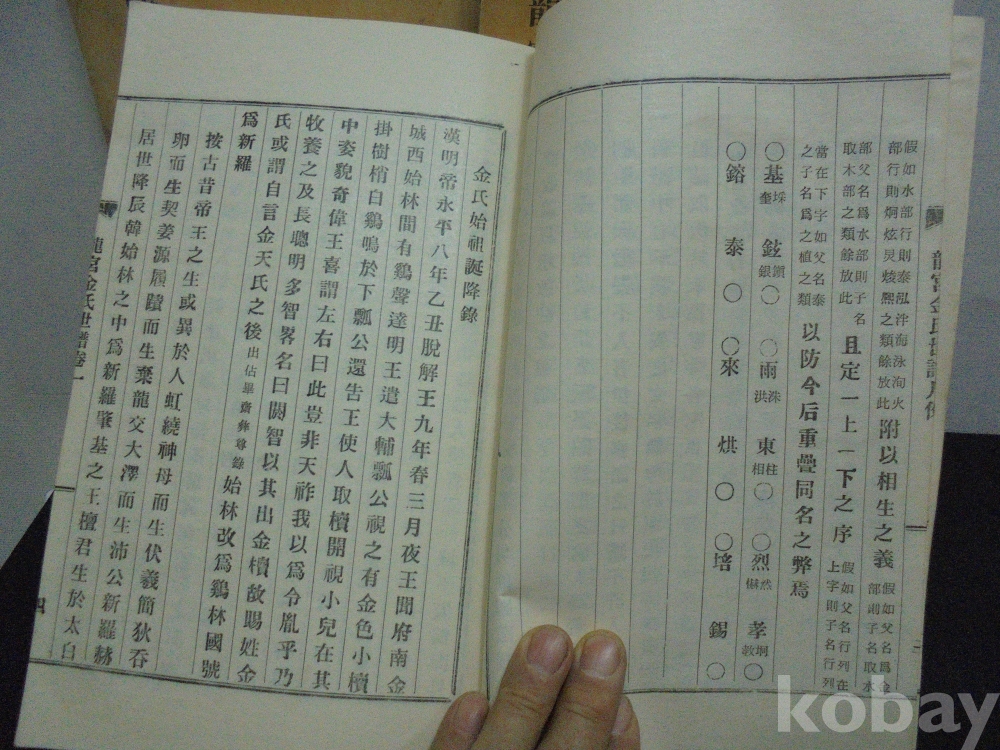 假如水部行則泰泓泮海泳洵火
部行則炯炫炅焌熙之類餘放此
附以相生之義
假如父名爲金
部則子名取水
部父名爲水部則子名
取木部之類餘放此
且定一上一下之序
假如父名行列在
上字則子名行列
當在下字如父名泰
之子名爲之植之類
以防今后重疊同名之弊焉
〇基埰奎 鉉鎭銀〇 〇雨洙洪 東柱相〇 〇烈然 孝坰敎〇
〇鎔 泰〇 〇來 烘〇 〇培 錫〇
龍宮金氏世譜凡例
金氏始祖誕降錄
漢明帝永平八年乙丑脫解王九年春三月夜王聞府南金
城西始林間有鷄聲達明王遣大輔瓢公視之有金色小櫝
掛樹梢白鷄鳴於下瓢公還告王使人取櫝開視小兒在其
中姿貌奇偉王喜謂左右曰此豈非天祚我以爲令胤乎乃
牧養之及長聰明多智畧名曰閼智以其出金櫝故賜姓金
氏或謂自言金天氏之後出佔畢齋彝尊錄始林改爲鷄林國號
爲新羅
按古昔帝王之生或異於人虹繞神母而生伏羲簡狄吞
卵而生契姜源履蹟而生棄龍交大澤而生沛公新羅赫
居世降辰韓始林之中爲新羅肇基之王檀君生於太白
龍宮金氏世譜卷一
四
kobay